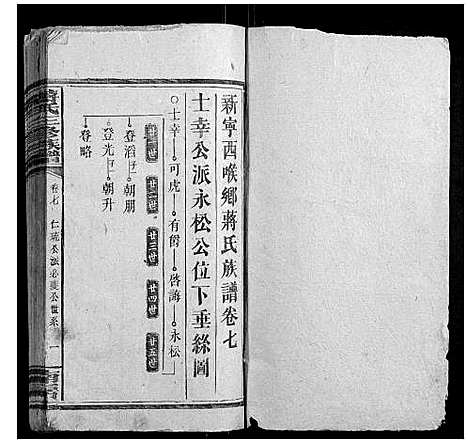 新寧西喉鄉蔣氏族譜卷七
士幸公派永松公位下垂絲圖
士幸 可虎 有爵 啓誨 永松
廿一世 廿二世 廿三世 廿四世 廿五世
登滔 朝朋
登光 朝升
登略
蔣氏三修族譜
卷七 仁琉公派必勝公世系 一